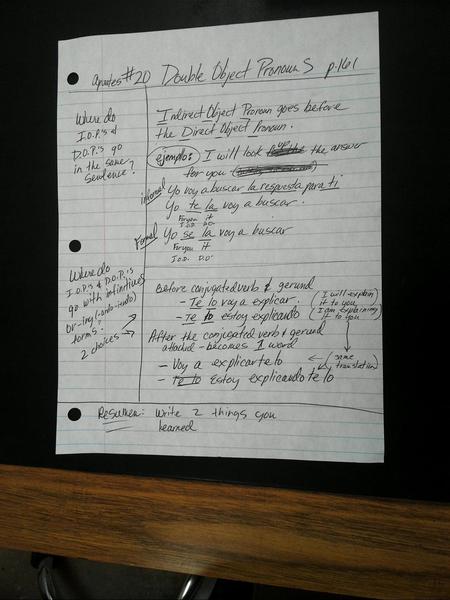 apuntes #20 Double Object Pronouns p.161
Where do
I.O.P.'s &
D.O.P.'s go
in the same
sentence?
Indirect Object Pronoun goes before
the Direct Object Pronoun.
ejemplo: I will look up the answer
for you
informal Yo voy a buscar la respuesta para ti
Yo te la voy a buscar.
For you it
I.O.D. D.O.
Formal Yo se la voy a buscar
For you it
I.O.D. D.O.
Where do
I.O.P.'s & D.O.P.'s
go with infinitives
or -ing (-ando, -iendo)
forms?
2 choices →
Before conjugated verb & gerund
- Te lo voy a explicar. (I will explain it to you)
- Te lo estoy explicando (I am explaining it to you)
After the conjugated verb & gerund
attached - becomes 1 word
- Voy a explicartelo
- Te lo Estoy explicando te lo
(same translation)
Resumen: Write 2 things you
learned